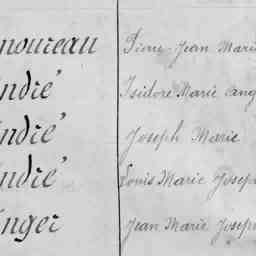 noureau Pierre Jean Marie
ndré Isidore Marie Ang
ndré Joseph Marie
ndré Louis Marie Joseph
nger Jean Marie Joseph